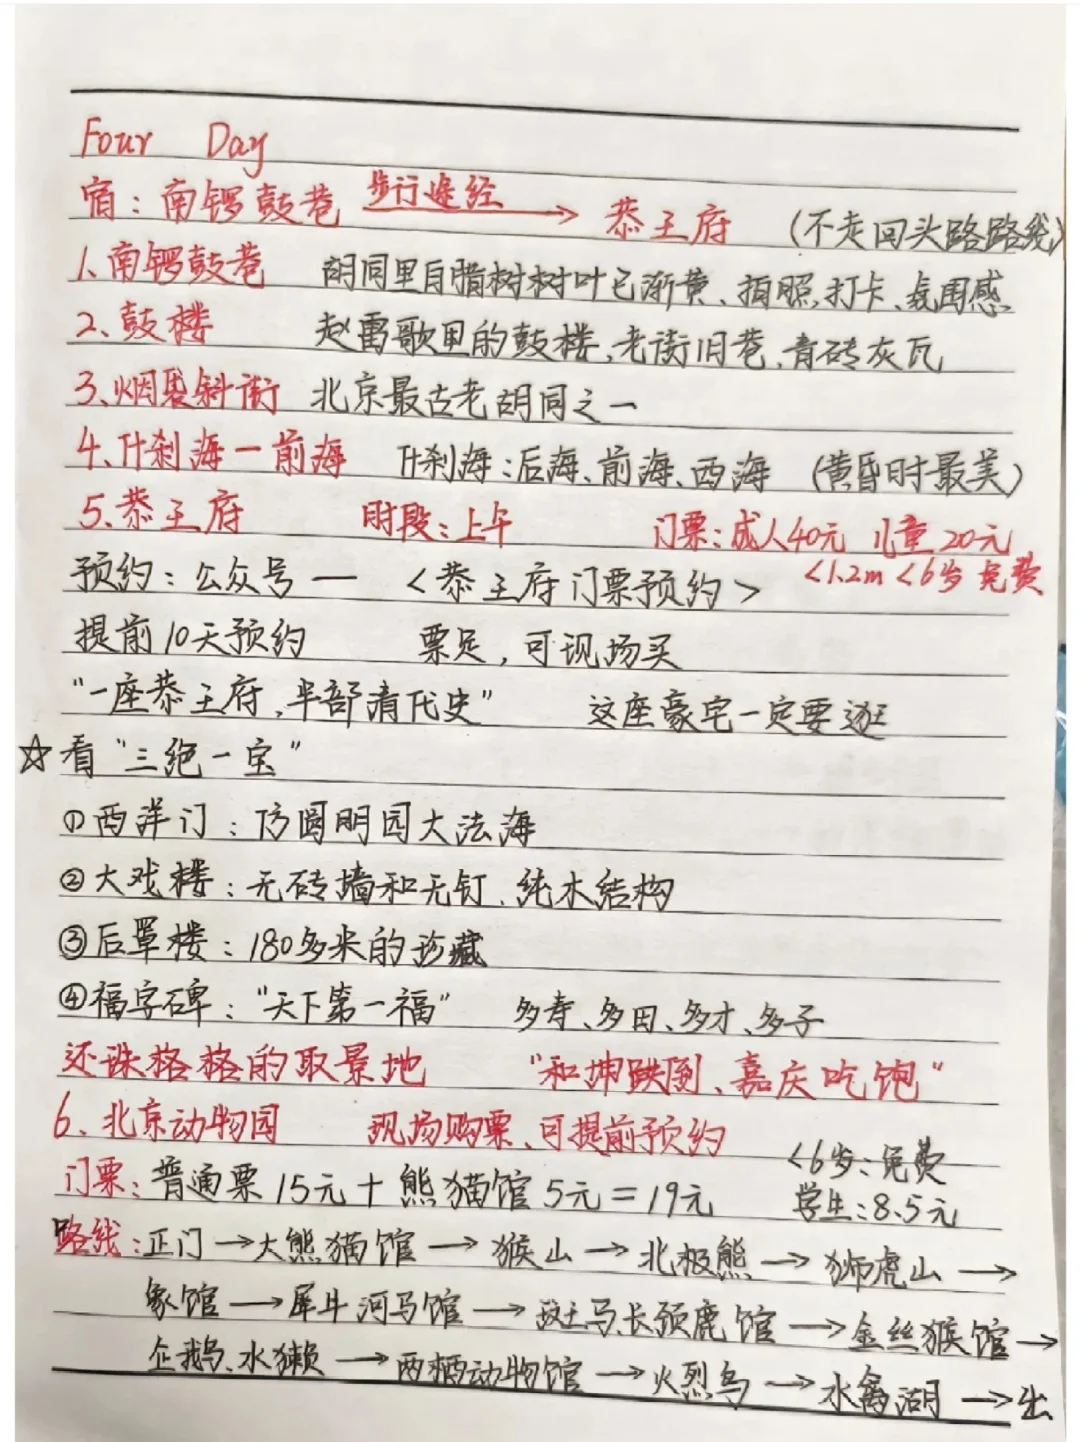 Four Day
宿：南锣鼓巷 步行途经 → 恭王府 （不走回头路路线）
1、南锣鼓巷 胡同里白腊树树叶已渐黄、拍照、打卡、氛围感
2、鼓楼 赵雷歌里的鼓楼，老街旧巷，青砖灰瓦
3、烟袋斜街 北京最古老胡同之一
4、什刹海一前海 什刹海：后海、前海、西海 （黄昏时最美）
5、恭王府 时段：上午 门票：成人40元 儿童20元
<1.2m <6岁 免费
预约：公众号 — <恭王府门票预约>
提前10天预约 票足，可现场买
“一座恭王府，半部清代史” 这座豪宅一定要逛
☆看“三绝一宝”
①西洋门：仿圆明园大法海
②大戏楼：无砖墙和无钉、纯木结构
③后罩楼：180多米的珍藏
④福字碑：“天下第一福” 多寿、多田、多才、多子
还珠格格的取景地 “和珅跌倒、嘉庆吃饱”
6、北京动物园 现场购票、可提前预约
<6岁：免费
门票：普通票15元＋熊猫馆5元＝19元 学生：8.5元
路线：正门→大熊猫馆→猴山→北极熊→狮虎山→
象馆→犀牛河马馆→斑马、长颈鹿馆→金丝猴馆→
企鹅、水獭→两栖动物馆→火烈鸟→水禽湖→出